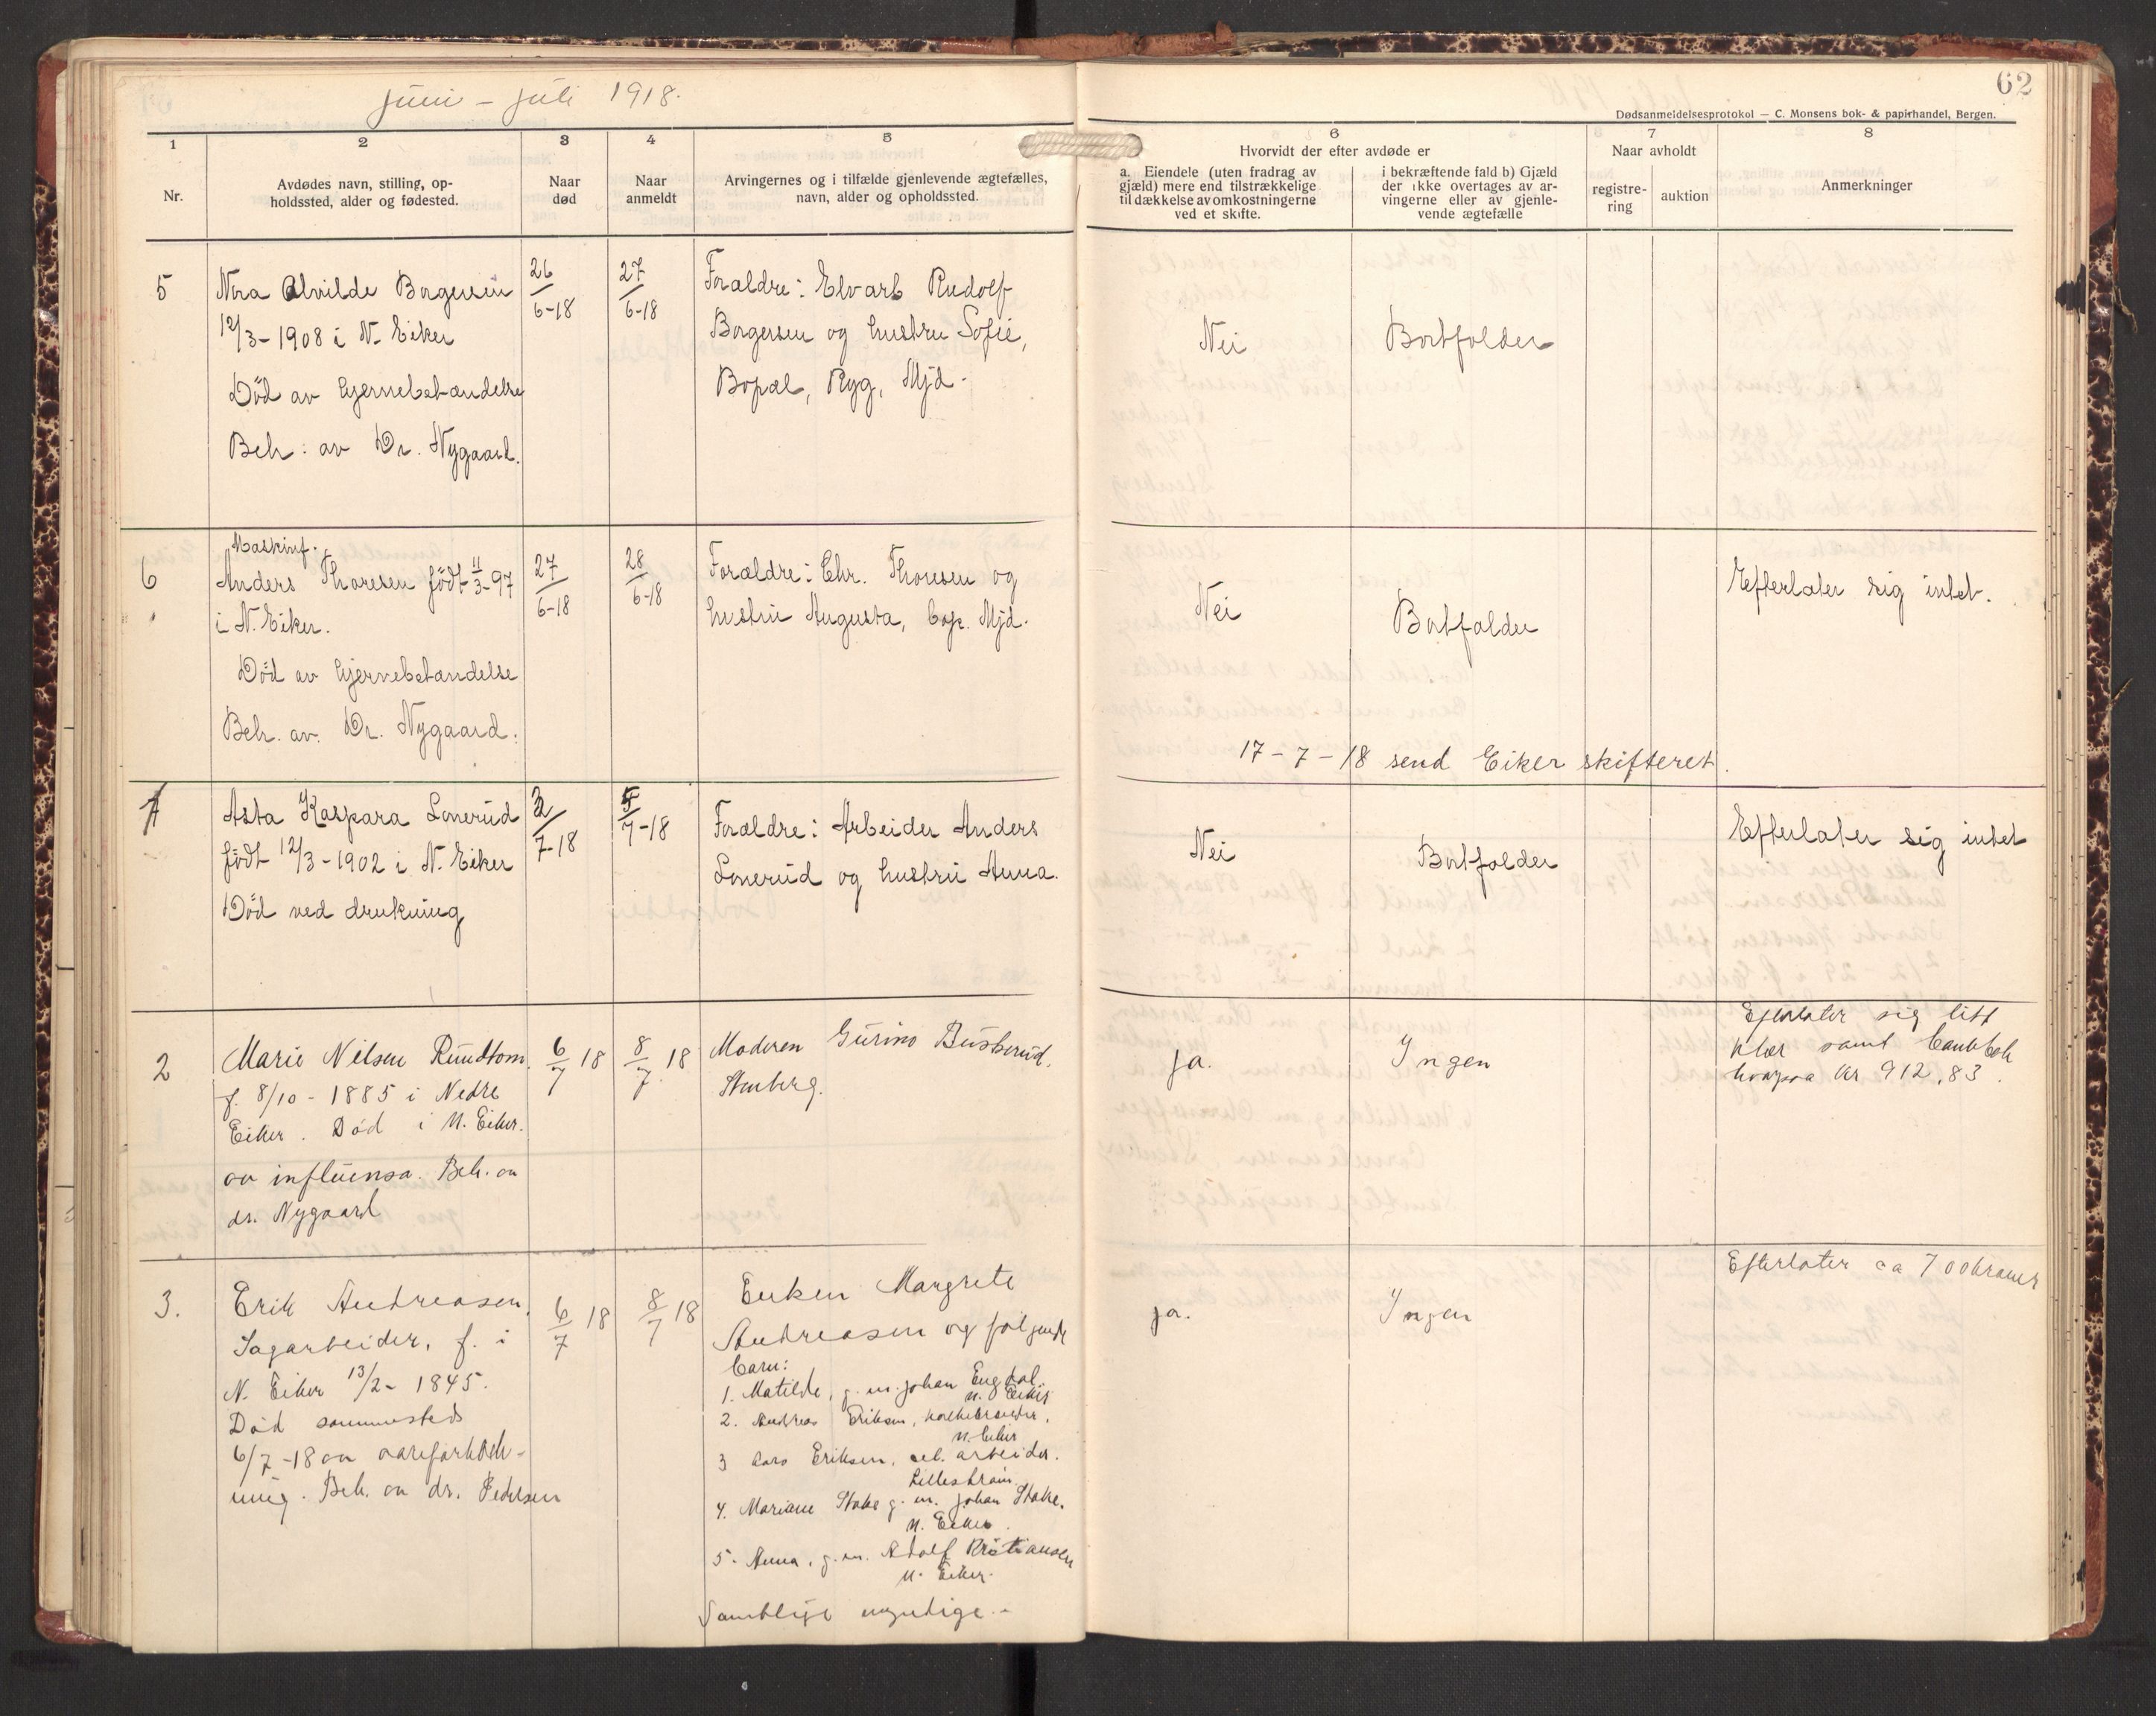 juni - juli 1918.
62
Dødsanmeldelsesprotokol — C. Monsens bok- & papirhandel, Bergen.
1
2
3
4
5
6
7
8
Nr.
Avdødes navn, stilling, op-
holdssted, alder og fødested.
Naar
død
Naar
anmeldt
Arvingernes og i tilfælde gjenlevende ægtefælles,
navn, alder og opholdssted.
Hvorvidt der efter avdøde er
a. Eiendele (uten fradrag av
gjæld) mere end tilstrækkelige
til dækkelse av omkostningerne
ved et skifte.
i bekræftende fald b) Gjæld
der ikke overtages av ar-
vingerne eller av gjenle-
vende ægtefælle
Naar avholdt
registre-
ring
auktion
Anmerkninger
5
Nora Alvilde Borgersen
12/3-1908 i N. Eiker
Död av hjernebetændelse
Beh: av Dr. Nygaard.
26/6-18
27/6-18
Forældre: Elvarb Rudolf
Borgersen og hustru Sofie,
Bopæl, Ryg, Mjd.
Nei
Bortfalder
6
Maskinf.
Anders Thoresen født 11/3-97
i N. Eiker.
Död av hjernebetændelse
Beh. av. Dr. Nygaard.
27/6-18
28/6-18
Forældre: Chr. Thoresen og
hustru Augusta, bop. Mjd.
Nei
Bortfalder
Efterlater sig intet.
17-7-18 send Eiker skifteret.
1
Asta Kaspara Lonerud
født 12/3-1902 i N. Eiker
Död ved drukning
/7-18
5/7-18
Forældre: Arbeider Anders
Lonerud og hustru Anna.
Nei
Bortfalder
Efterlater sig intet
2
Marie Nilsen Rundtom.
f. 8/10-1885 i Nedre
Eiker. Død i N. Eiker.
av influensa. Beh. av
dr. Nygaard
6/7 18
8/7 18
Moderen Gurine Buskerud.
Stenberg.
ja.
Ingen
Efterlater sig litt
klær samt bankbok
hvorpaa kr 912,83.
3.
Erik Andreasen,
Sagarbeider, f. i
N. Eiker 13/2-1845.
Død sammesteds
6/7-18 av aareforkalk-
ning. Beh. av dr. Pedersen
6/7 18
8/7 18
Enken Margrete
Andreasen og følgende
barn:
1. Matilde, g. m. Johan Engdal.
N. Eiker
2. Andreas Eriksen,
N. Eiker
3 Lars Eriksen, arbeider.
Lillestrøm
4. Mariane Stake g. m. Johan Stake.
N. Eiker.
5. Anna, g. m. Adolf Kristiansen
N. Eiker.
Samtlige myndige.-
ja.
Ingen
Efterlater ca 700 kroner